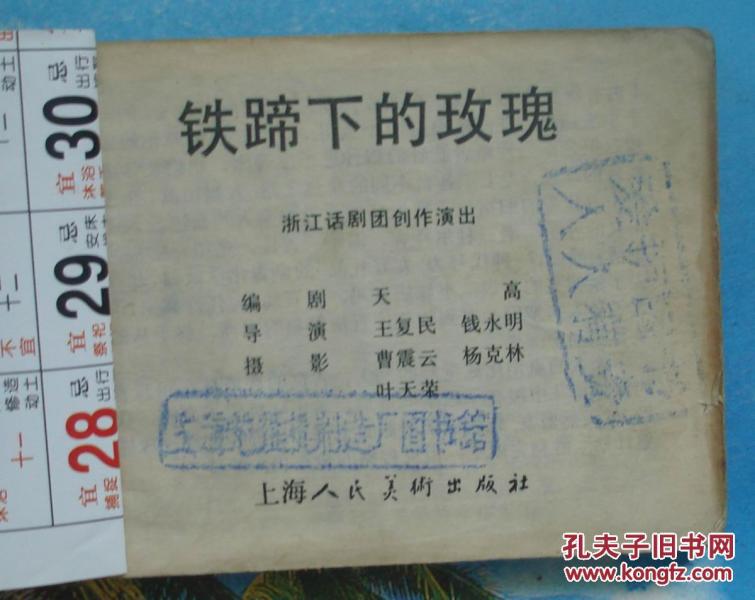 铁蹄下的玫瑰
浙江话剧团创作演出
编 剧 天 高
导 演 王复民 钱永明
摄 影 曹震云 杨克林
叶天荣
上海人民美術出版社
30
宜
忌
沐浴
出行
29
宜
忌
祭祀
安床
28
宜
忌
捕捉
出行
修造
动土
十一
十二
不宜
孔夫子旧书网
www.kongfz.com